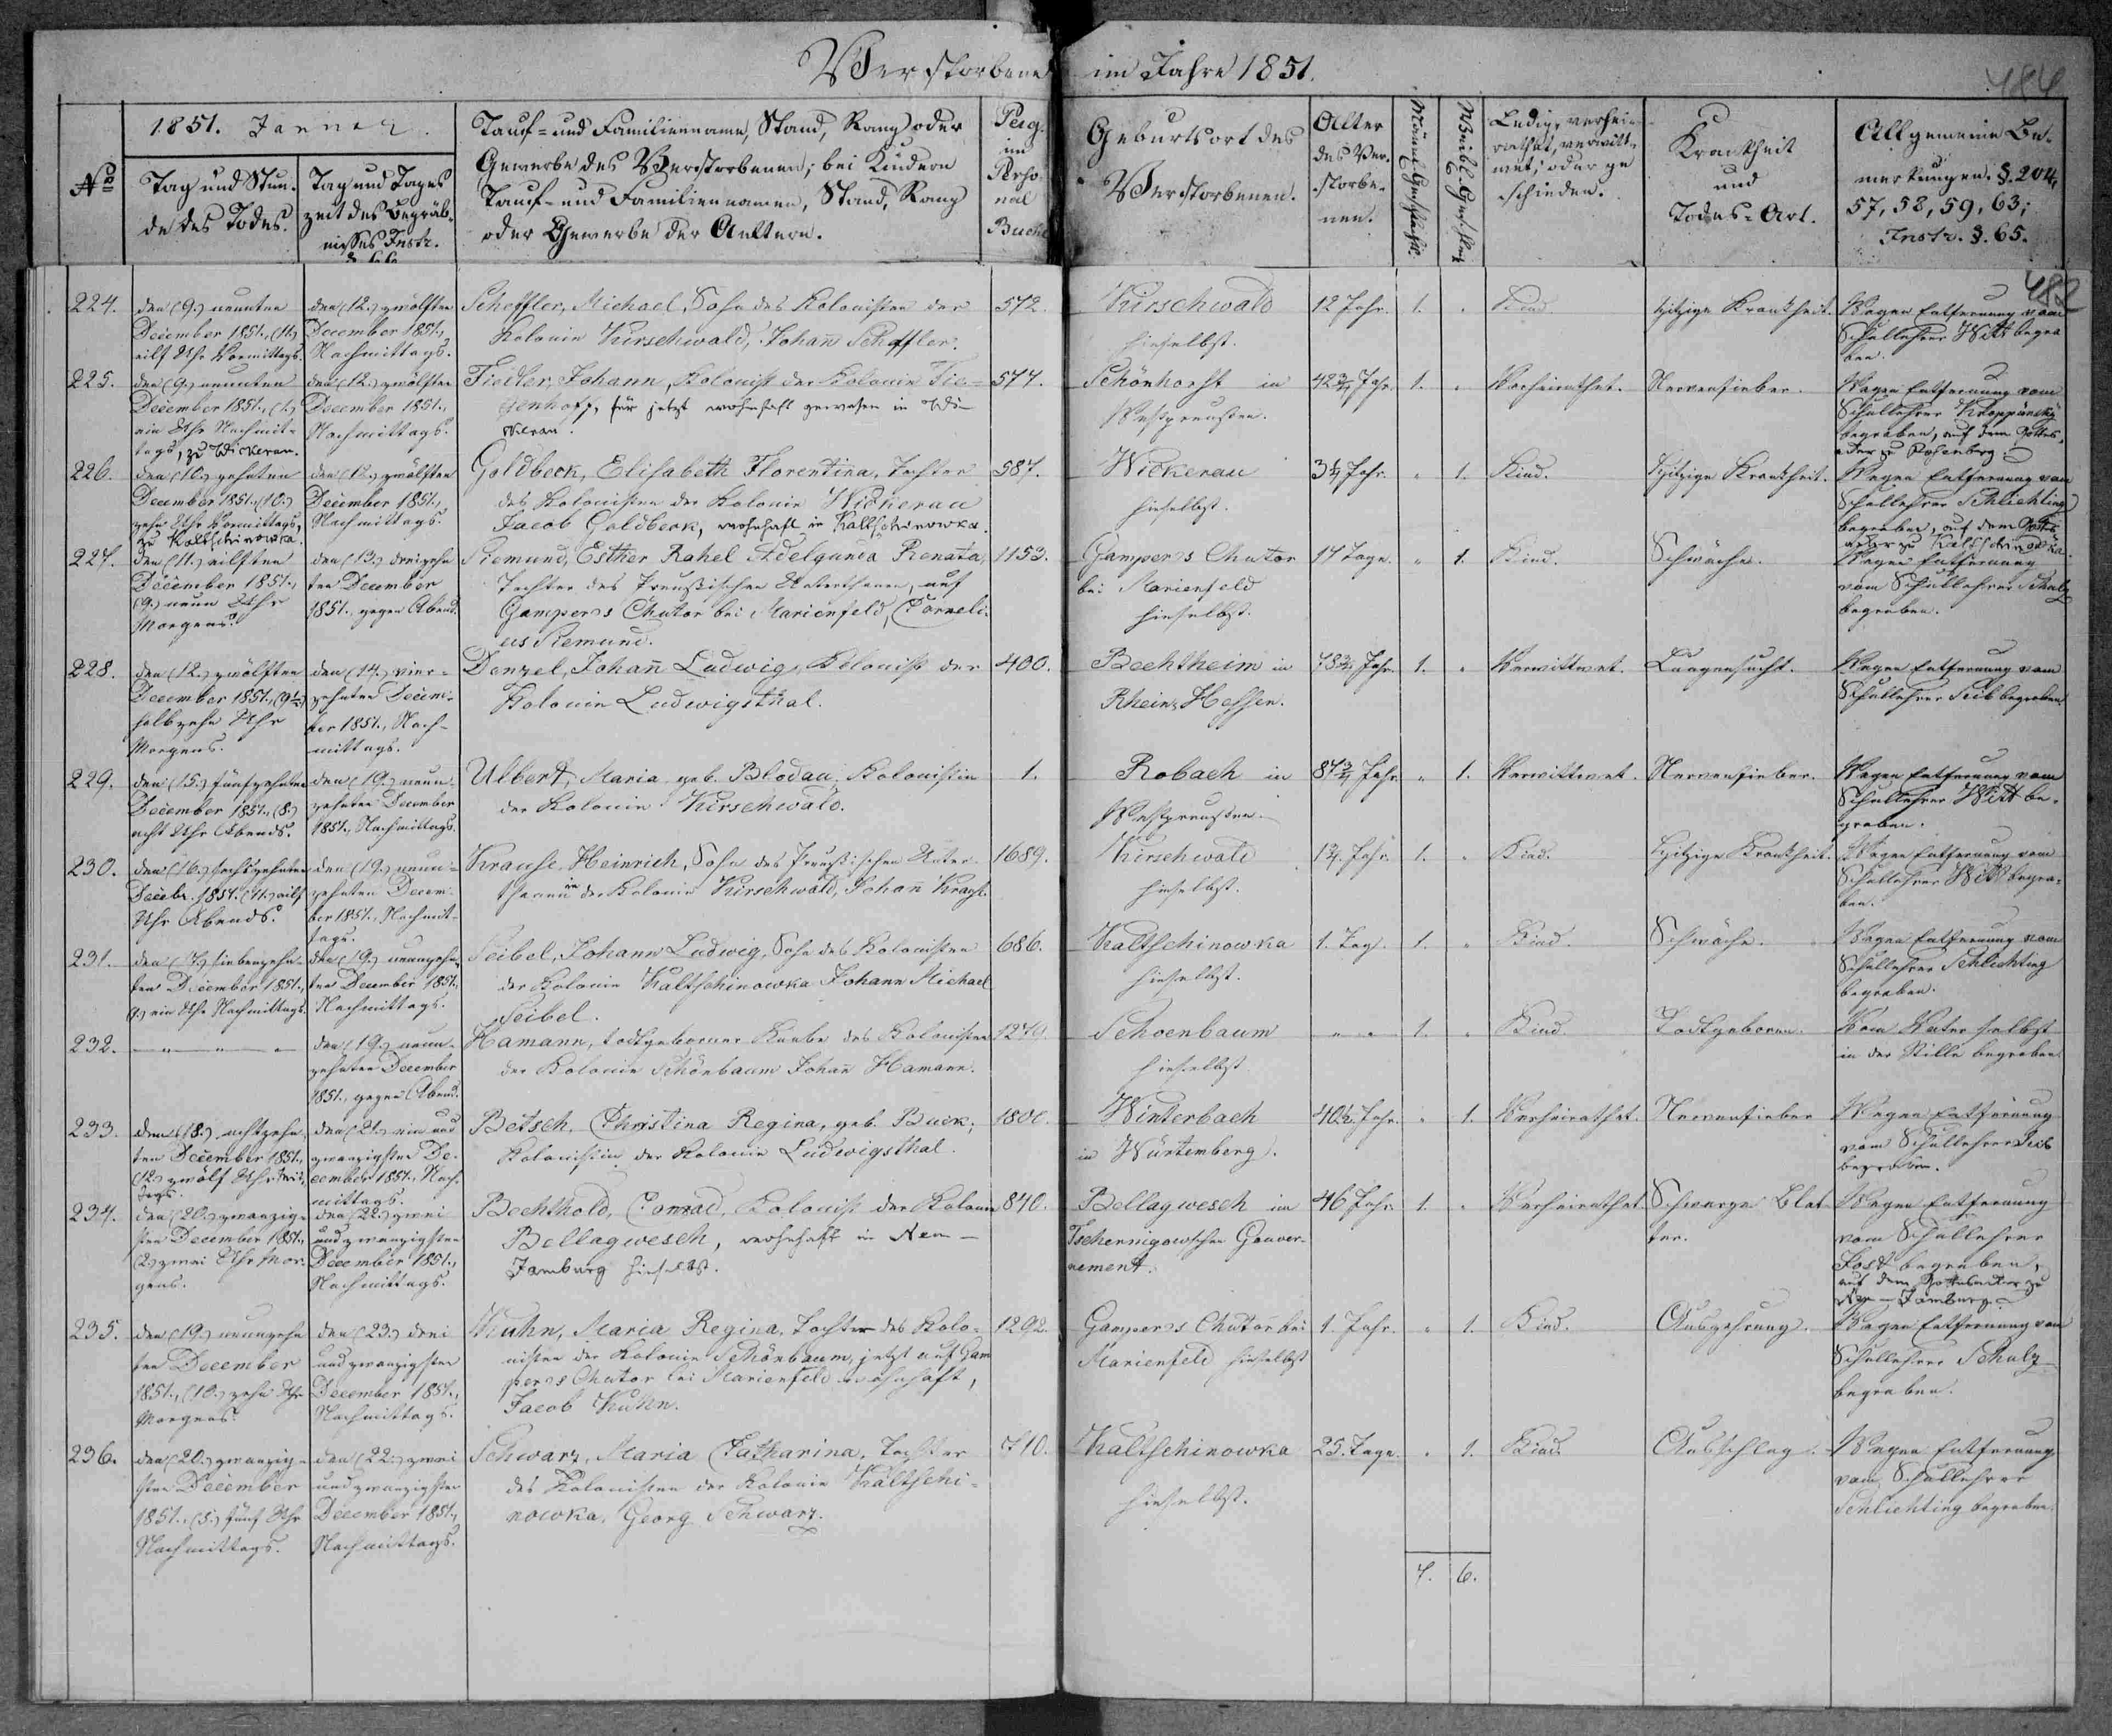 Verstorbene im Jahre 1851.
484
1851. Januar.
Nº
Tag und Stun-
de des Todes.
Tag und Tages
zeit des Begräb-
nisses Instr.
§ 66
Tauf- und Familienname, Stand, Rang oder
Gewerbe des Verstorbenen; bei Kindern
Tauf- und Familiennamen, Stand, Rang
oder Gewerbe der Aeltern.
Pag.
im
Perso-
nal
Buche
Geburtsort des
Verstorbenen.
Alter
des Ver-
storbe-
nen.
Männl. Geschlecht.
Weibl. Geschlecht
Ledig, verhei-
rathet, verwitt-
wet, oder ge
schieden.
Krankheit
und
Todes-Art.
Allgemeine Be-
merkungen. §. 204,
57, 58, 59, 63;
Instr. §. 65.
482
224.
den (9.) neunten
December 1851., (11.)
eilf Uhr Vormittags.
den (12.) zwölften
December 1851.,
Nachmittags.
Scheffler, Michael, Sohn des Kolonisten der
Kolonie Kirschwald, Johañ Scheffler.
572.
Kirschwald
hieselbst.
12 Jahr.
1.
Kind.
Hitzige Krankheit.
Wegen Entfernung vom
Schullehrer Witt begra
ben.
225.
den (9.) neunten
December 1851., (1.)
ein Uhr Nachmit-
tags, zu Wickerau.
den (12.) zwölften
December 1851.,
Nachmittags.
Fiedler, Johann, Kolonist der Kolonie Tie-
genhoff, für jetzt wohnhaft gewesen in Wi-
ckerau.
577.
Schönhorst in
Westpreussen.
42¾ Jahr.
1.
Verheirathet.
Nervenfieber.
Wegen Entfernung vom
Schullehrer
begraben, auf dem Gottes-
acker zu Rosenberg.
226.
den (10.) zehnten
December 1851., (10.)
zehn Uhr Vormittags,
zu Kaltschinowka.
den (12.) zwölften
December 1851.,
Nachmittags.
Goldbeck, Elisabeth Florentina, Tochter
des Kolonisten der Kolonie Wickerau
Jacob Goldbeck, wohnhaft in Kaltschinowka.
587.
Wickerau
hieselbst.
3½ Jahr.
1.
Kind.
Hitzige Krankheit.
Wegen Entfernung vom
Schullehrer Schlichting
begraben, auf dem Gottes
acker zu Kaltschinowka.
227.
den (11.) eilften
December 1851.,
(9.) neun Uhr
Morgens.
den (13.) dreizehn
ten December
1851., gegen Abend.
Siemund, Esther Rahel Adelgunda Renata,
Tochter des Preußischen Unterthanen, auf
Gampers Chutor bei Marienfeld, Corneli-
us Siemund.
1153.
Gampers Chutor
bei Marienfeld
hieselbst.
17 Tage.
1.
Kind.
Schwäche.
Wegen Entfernung
vom Schullehrer Schulz
begraben.
228.
den (12.) zwölften
December 1851., (9½)
halbzehn Uhr
Morgens.
den (14.) vier-
zehnten Decem-
ber 1851., Nach-
mittags.
Denzel, Johañ Ludwig, Kolonist der
Kolonie Ludwigsthal.
400.
Bechtheim in
Rhein-Hessen.
78¾ Jahr.
1.
Verwittwet.
Lungensucht.
Wegen Entfernung vom
Schullehrer Seib begraben.
229.
den (15.) fünfzehnten
December 1851., (8.)
acht Uhr Abends.
den (19.) neun-
zehnten December
1851., Nachmittags.
Ulbert, Maria geb. Blodau, Kolonistin
der Kolonie Kirschwald.
1.
Robach in
Westpreussen.
87¾ Jahr.
1.
Verwittwet.
Nervenfieber.
Wegen Entfernung vom
Schullehrer Witt be-
graben.
230.
den (16.) sechszehnten
Decebr. 1851. (11.) eilf
Uhr Abends.
den (19.) neun-
zehnten Decem-
ber 1851., Nachmit-
tags.
Krause, Heinrich, Sohn des Preußischen Unter-
thanen in der Kolonie Kirschwald, Johañ Krause.
1689.
Kirschwald
hieselbst.
Jahr.
1.
Kind.
Hitzige Krankheit.
Wegen Entfernung vom
Schullehrer Witt begra-
ben.
231.
den (17.) siebenzehn-
ten December 1851.,
(1.) ein Uhr Nachmittags.
den (19.) neunzehn
ten December 1851.,
Nachmittags.
Seibel, Johann Ludwig, Sohn des Kolonisten
der Kolonie Kaltschinowka Johann Michael
Seibel.
686.
Kaltschinowka
hieselbst.
1. Tag.
1.
Kind.
Schwäche.
Wegen Entfernung vom
Schullehrer Schlichting
begraben.
232.
den (19.) neun-
zehnten December
1851., gegen Abend.
Hamann, todtgeborner Knabe des Kolonisten
der Kolonie Schönbaum Johañ Hamann.
1270.
Schoenbaum
hieselbst
1.
Kind.
Todtgeboren.
Vom Vater selbst
in der Stille begraben.
233.
den (18.) achtzehn-
ten December 1851.,
(12.) zwölf Uhr Mit-
tags.
den (21.) ein und
zwanzigsten De-
cember 1851., Nach-
mittags.
Betsch, Christina Regina, geb. Buck,
Kolonistin der Kolonie Ludwigsthal.
1800.
Winterbach
in Würtemberg.
40½ Jahr.
1.
Verheirathet.
Nervenfieber
Wegen Entfernung
vom Schullehrer Seib
begraben.
234.
den (20.) zwanzig-
sten December 1851.,
(2.) zwei Uhr Mor-
gens.
den (22.) zwei
und zwanzigsten
December 1851.,
Nachmittags.
Bechthold, Conrad, Kolonist der Kolonie
Bellagwesch, wohnhaft in Neu-
Jamburg hieselbst.
840.
Bellagwesch im
Tschernigowschen Gouver-
nement.
46 Jahr.
1.
Verheirathet.
Schwarze Blat-
ter.
Wegen Entfernung
vom Schullehrer
Jost begraben,
auf dem Gottesacker zu
Neu-Jamburg.
235.
den (19.) neunzehn
ten December
1851., (10.) zehn Uhr
Morgens.
den (23.) drei
und zwanzigsten
December 1851.,
Nachmittags.
Kuhn, Maria Regina, Tochter des Kolo-
nisten der Kolonie Schönbaum, jetzt auf Gam
pers Chutor bei Marienfeld wohnhaft,
Jacob Kuhn.
1292.
Gampers Chutor bei
Marienfeld hieselbst
1. Jahr.
1.
Kind.
Auszehrung.
Wegen Entfernung vom
Schullehrer Schulz
begraben.
236.
den (20.) zwanzig-
sten December
1851., (5.) fünf Uhr
Nachmittags.
den (22.) zwei
und zwanzigsten
December 1851.,
Nachmittags.
Schwarz, Maria Catharina, Tochter
des Kolonisten der Kolonie Kaltschi-
nowka, Georg Schwarz.
710.
Kaltschinowka
hieselbst.
25. Tage.
1.
Kind
Ausschlag.
Wegen Entfernung
vom Schullehrer
Schlichting begraben.
7. 6.